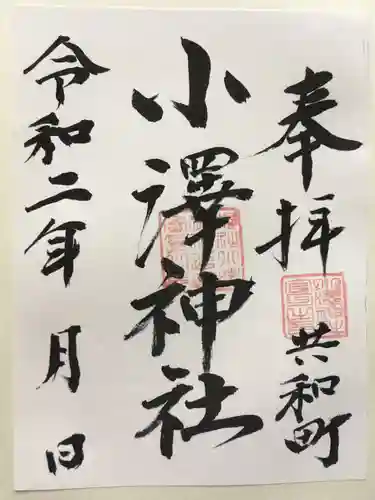 奉拝
共和町
小澤神社
令和二年 月 日